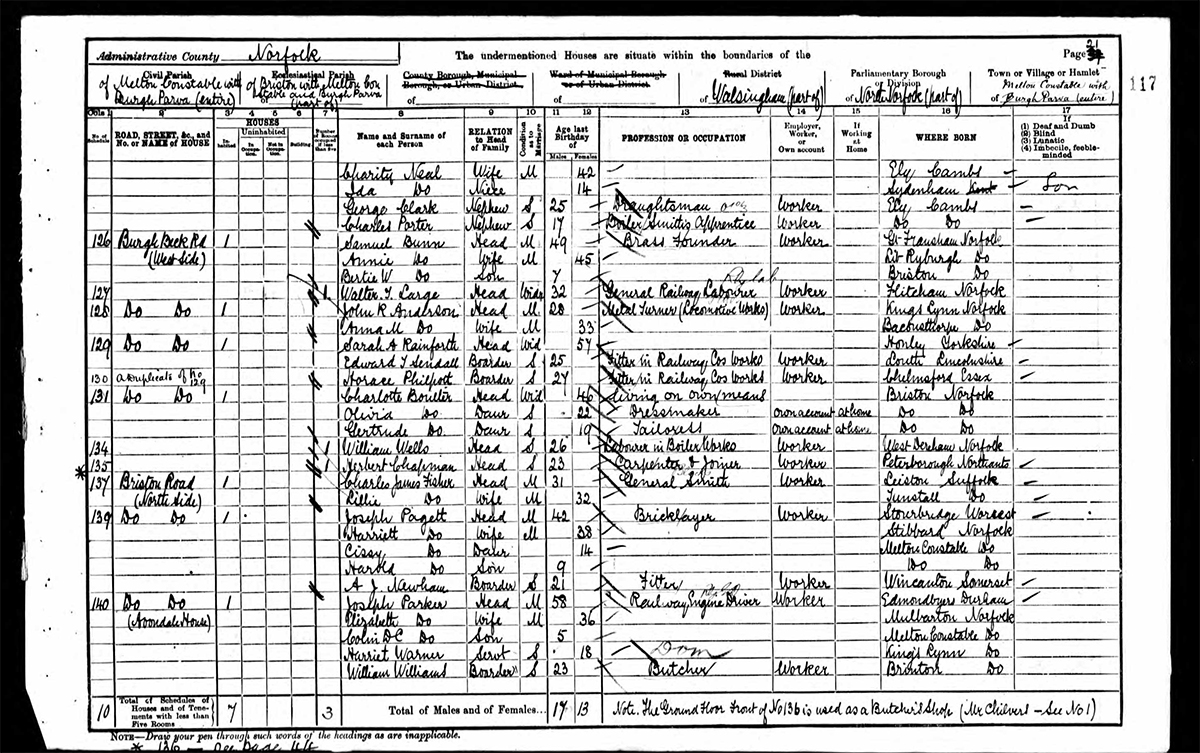 Administrative County Norfolk The undermentioned Houses are situate within the boundaries of the Page 21
Civil Parish Ecclesiastical Parish County Borough, Municipal Borough, or Urban District Ward of Municipal Borough or of Urban District Rural District Parliamentary Borough or Division Town or Village or Hamlet
of Melton Constable with Burgh Parva (entire) of Briston with Melton Constable and Burgh Parva (part of) of of of Walsingham (part of) of North Norfolk (part of) of Melton Constable with Burgh Parva (entire) 117
Cols 1 2 3 4 5 6 7 8 9 10 11 12 13 14 15 16 17
No. of Schedule ROAD, STREET, &c., and No. or NAME of HOUSE HOUSES Inhabited Uninhabited In Occupation. Not in Occupation. Building Number of Rooms occupied if less than five Name and Surname of each Person RELATION to Head of Family Condition as to Marriage Age last Birthday of Males Females PROFESSION OR OCCUPATION Employer, Worker, or Own account If Working at Home WHERE BORN If (1) Deaf and Dumb (2) Blind (3) Lunatic (4) Imbecile, feeble-minded
Charity Neal Wife M 42 — Ely Cambs
Ida Do Niece 14 — Sydenham Kent Lon
George Clark Nephew S 25 Draughtsman Worker Ely Cambs
Charles Porter Nephew S 17 Boiler Smith's Apprentice Worker Do Do
126 Burgh Beck Rd 1 Samuel Bunn Head M 49 Brass Founder Worker Gt Fransham Norfolk
(West Side) Annie Do Wife M 45 Lit Ryburgh Do
Bertie W Do Son 7 Briston Do
127 Walter T. Large Head Widr 32 General Railway Labourer Worker Flitcham Norfolk
128 Do Do 1 John R Anderson Head M 28 Metal Turner (Locomotive Works) Worker Kings Lynn Norfolk
Anna M Do Wife M 33 Baconsthorpe Do
129 Do Do 1 Sarah A Rainforth Head Wid 57 — Honley Yorkshire
Edward T Sendall Boarder S 25 Fitter in Railway Cos Works Worker Louth Lincolnshire
130 a duplicate of No 129 Horace Philpott Boarder S 27 Fitter in Railway Cos Works Worker Chelmsford Essex
131 Do Do 1 Charlotte Boulter Head Wid 46 Living on own means Briston Norfolk
Olivia Do Daur S 22 Dressmaker own account at home Do Do
Gertrude Do Daur S 19 Tailoress own account at home Do Do
134 William Wells Head S 26 Labourer in Boiler Works Worker West Dereham Norfolk
135 Herbert Chapman Head S 23 Carpenter & Joiner Worker Peterborough Northants
* 137 Briston Road 1 Charles James Fisher Head M 31 General Smith Worker Leiston Suffolk
(North Side) Lillie Do Wife M 32 Tunstall Do
139 Do Do 1 Joseph Pagett Head M 42 Bricklayer Worker Stourbridge Worcest
Harriett Do Wife M 38 Stibbard Norfolk
Cissy Do Daur 14 — Melton Constable Do
Harold Do Son 9 Do Do
A. J. Newham Boarder S 21 Fitter Worker Wincanton Somerset
140 Do Do 1 Joseph Parker Head M 58 Railway Engine Driver Worker Edmondbyers Durham
(Avondale House) Elizabeth Do Wife M 36 Mulbarton Norfolk
Colin D C Do Son 5 Melton Constable Do
Harriet Warner Servt S 18 — Dom King's Lynn Do
William Williams Boarder S 23 Butcher Worker Brinton Do
10 Total of Schedules of Houses and of Tenements with less than Five Rooms 7 3 Total of Males and of Females... 17 13 Note. The Ground Floor Front of No 136 is used as a Butcher's Shop (Mr Chilvers — See No 1)
NOTE—Draw your pen through such words of the headings as are inapplicable.
* 136 - See Page